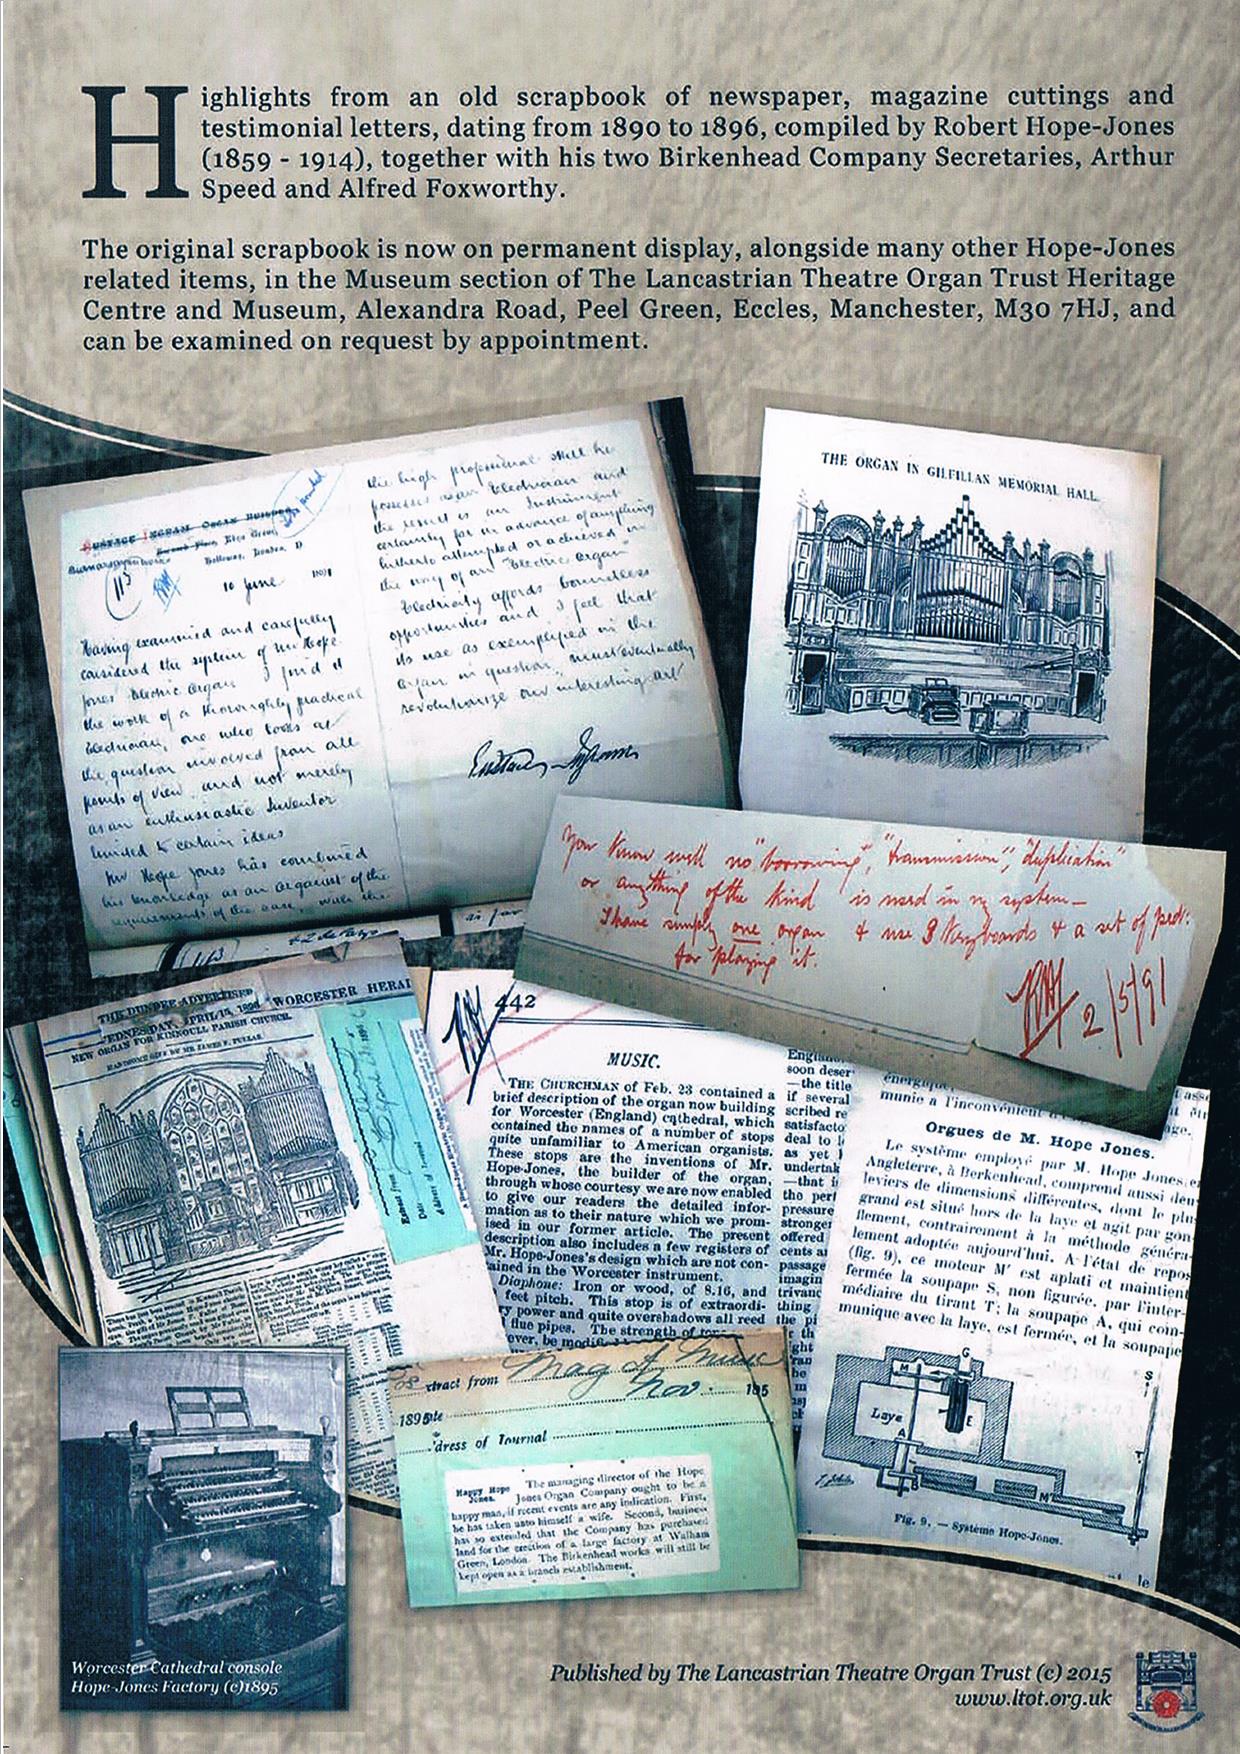 Highlights from an old scrapbook of newspaper, magazine cuttings and
testimonial letters, dating from 1890 to 1896, compiled by Robert Hope-Jones
(1859 - 1914), together with his two Birkenhead Company Secretaries, Arthur
Speed and Alfred Foxworthy.
The original scrapbook is now on permanent display, alongside many other Hope-Jones
related items, in the Museum section of The Lancastrian Theatre Organ Trust Heritage
Centre and Museum, Alexandra Road, Peel Green, Eccles, Manchester, M30 7HJ, and
can be examined on request by appointment.
EUSTACE INGRAM ORGAN BUILDER
Holloway, London, N
113
10 June 1891
Having examined and carefully
considered the system of Mr Hope
Jones Electric Organ I find it
the work of a thoroughly practical
Electrician, one who looks at
the question involved from all
points of view and not merely
as an enthusiastic Inventor
limited to certain ideas
Mr Hope Jones has combined
his knowledge as an organist of the
requirements of the case, with the
the high professional skill he
possesses as an Electrician and
the result is an Instrument
certainly far in advance of anything
hitherto attempted or achieved in
the way of an "Electric Organ"
Electricity affords boundless
opportunities and I feel that
its use as exemplified in the
organ in question, must eventually
revolutionize our "interesting art"
Eustace Ingram
THE ORGAN IN GILFILLAN MEMORIAL HALL.
You know well no "borrowing", "transmission", "duplication"
or anything of the kind is used in my system—
I have simply one organ & use 3 Keyboards & a set of ped:
for playing it.
RHJ 2/5/91
as far
113
THE DUNDEE ADVERTISER
WEDNESDAY, APRIL 15, 1896
NEW ORGAN FOR KINNOULL PARISH CHURCH.
HANDSOME GIFT BY MR JAMES F. PULLAR.
WORCESTER HERAL
442
MUSIC.
THE CHURCHMAN of Feb. 23 contained a
brief description of the organ now building
for Worcester (England) cathedral, which
contained the names of a number of stops
quite unfamiliar to American organists.
These stops are the inventions of Mr.
Hope-Jones, the builder of the organ,
through whose courtesy we are now enabled
to give our readers the detailed infor-
mation as to their nature which we prom-
ised in our former article. The present
description also includes a few registers of
Mr. Hope-Jones's design which are not con-
tained in the Worcester instrument.
Diaphone: Iron or wood, of 8.16, and
feet pitch. This stop is of extraordi-
ry power and quite overshadows all reed
flue pipes. The strength of tone
ever, be modified
England
soon deser
—the title
if several
scribed re
satisfacto
deal to
as yet
undertak
—that i
the perf
pressure
stronger
offered
cents a
passage
imagin
rivanc
thing
the pi
énergique
munie a l'inconvénient
Orgues de M. Hope Jones.
Le système employé par M. Hope Jones, en
Angleterre, à Berkenhead, comprend aussi deux
leviers de dimensions différentes, dont le plus
grand est situé hors de la laye et agit par gon-
flement, contrairement à la méthode généra-
lement adoptée aujourd'hui. A l'état de repos
(fig. 9), ce moteur M' est aplati et maintient
fermée la soupape S, non figurée, par l'inter-
médiaire du tirant T; la soupape A, qui com-
munique avec la laye, est fermée, et la soupape
G
M
S
Laye
E
A
T
B
M'
Fig. 9. — Système Hope-Jones.
xtract from Mag of Music
Nov. 195
1895
dress of Journal
Happy Hope Jones. The managing director of the Hope
Jones Organ Company ought to be a
happy man, if recent events are any indication. First,
he has taken unto himself a wife. Second, business
has so extended that the Company has purchased
land for the erection of a large factory at Walham
Green, London. The Birkenhead works will still be
kept open as a branch establishment.
Worcester Cathedral console
Hope-Jones Factory (c)1895
Published by The Lancastrian Theatre Organ Trust (c) 2015
www.ltot.org.uk